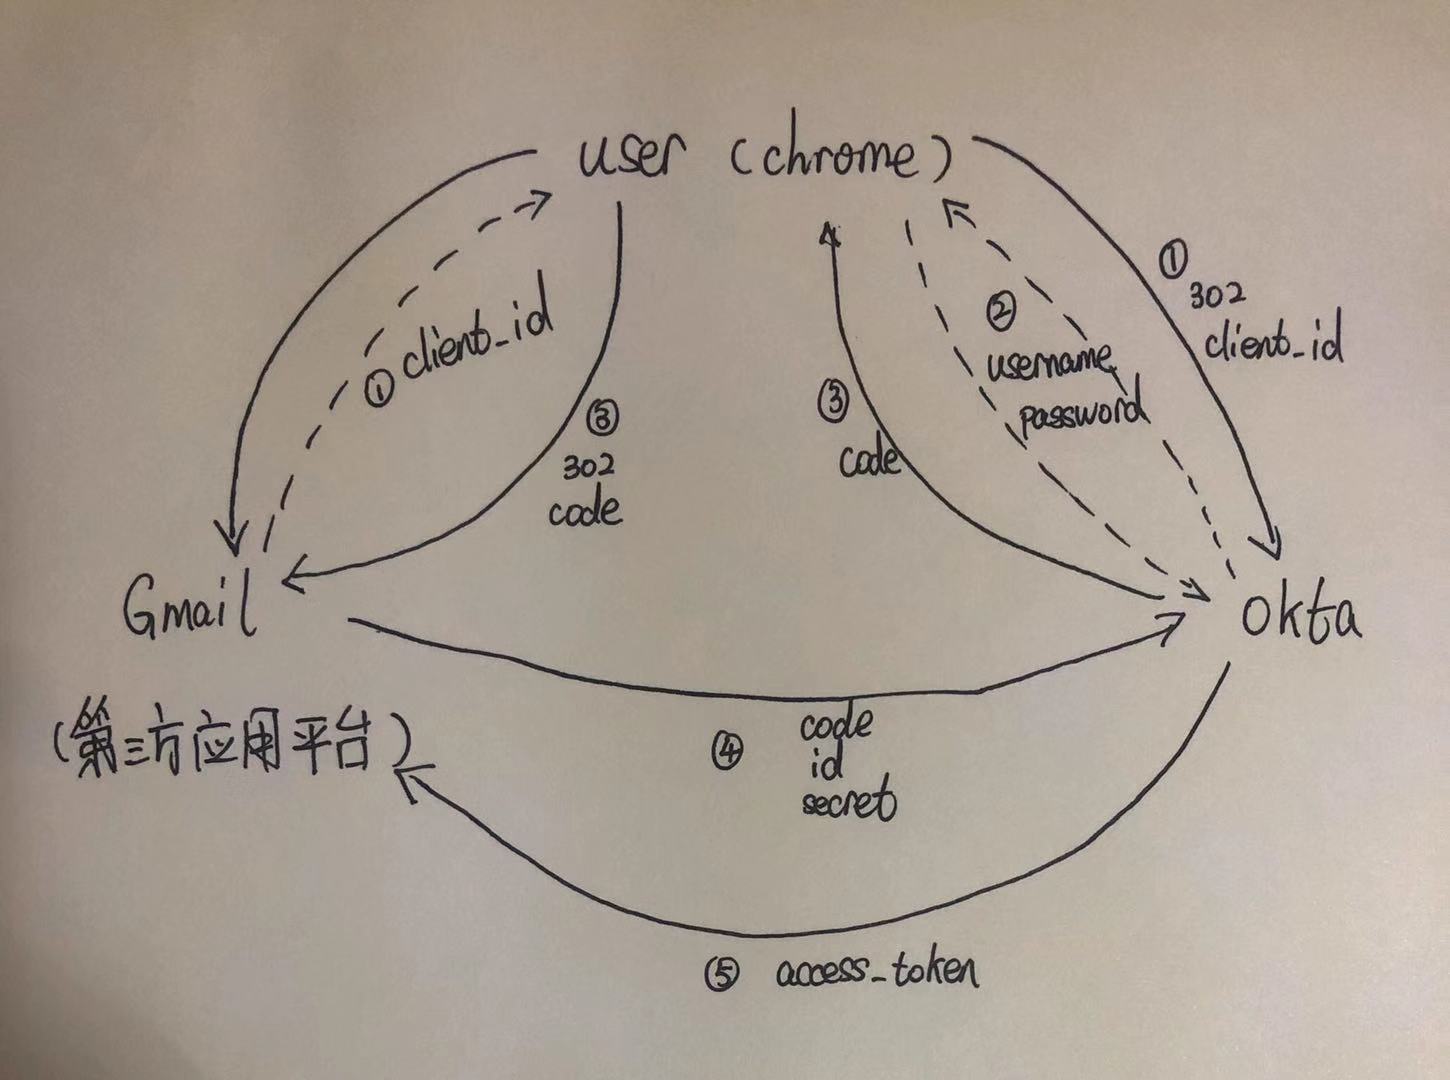 user (chrome)
① client_id
③
302
code
③
code
②
username
password
①
302
client_id
Gmail
(第三方应用平台)
okta
④
code
id
secret
⑤ access_token